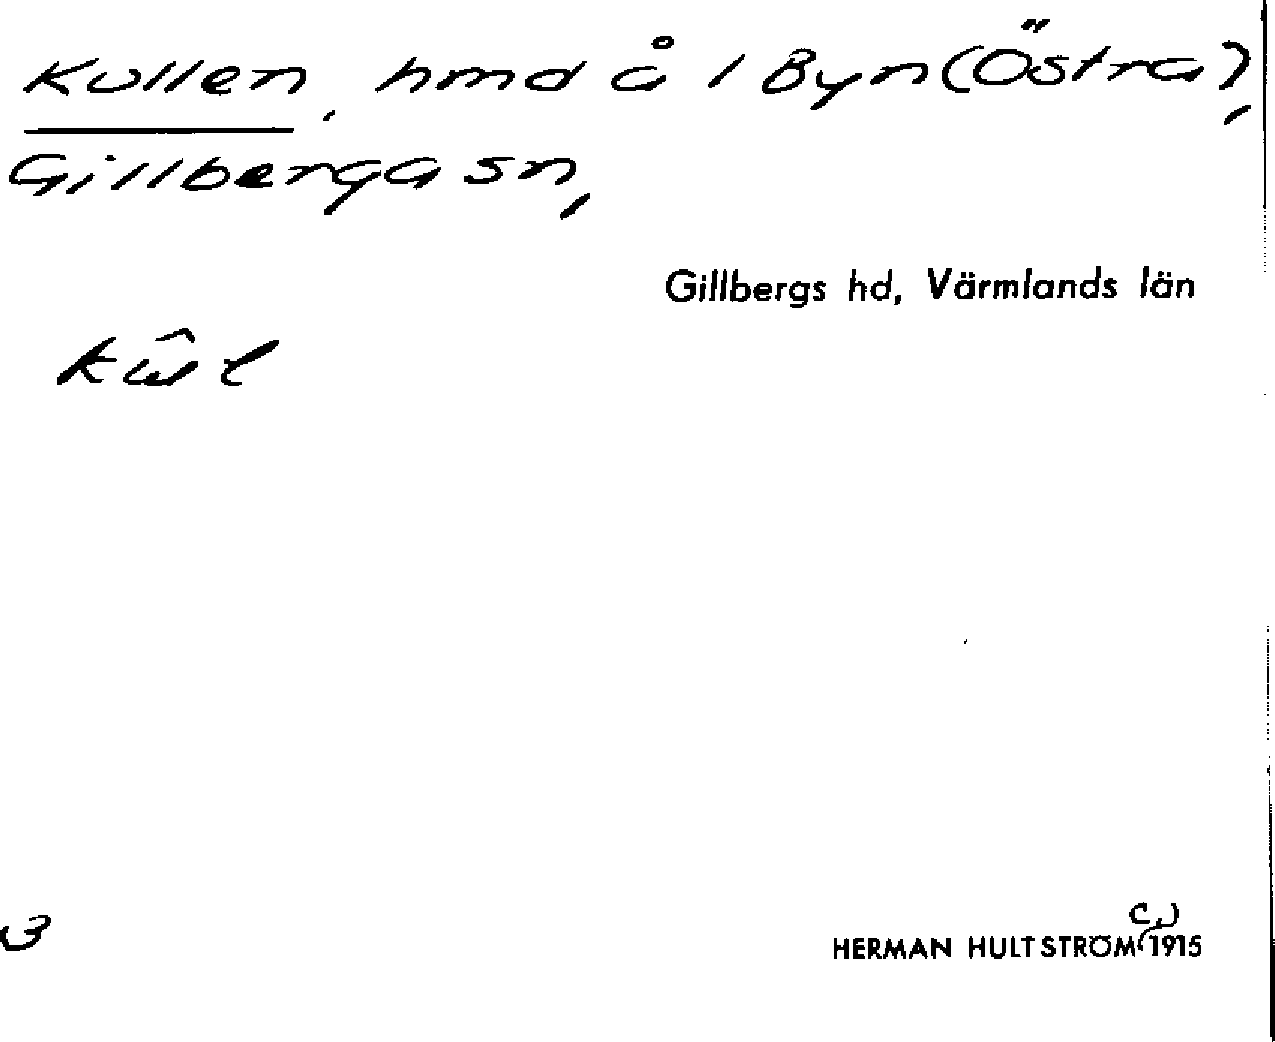 Kullen, hmd å 1 Byn (Östra),
Gillberga sn,
Gillbergs hd, Värmlands län
3
HERMAN HULTSTRÖM 1915